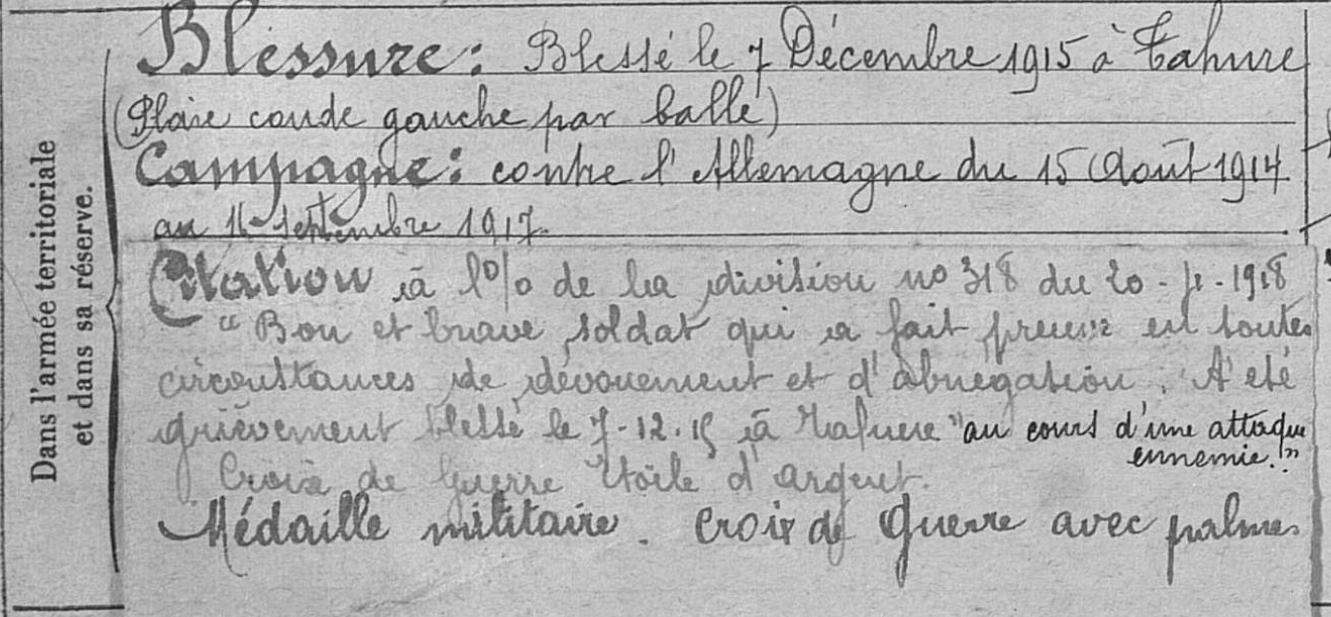 Dans l'armée territoriale
et dans sa réserve.
Blessure: Blessé le 7 Décembre 1915 à Tahure
(Plaie coude gauche par balle)
Campagne: contre l'Allemagne du 15 Août 1914
au 16 septembre 1917.
Citation à l'o/o de la division no 318 du 20 - - 1918
"Bon et brave soldat qui a fait preuve en toutes
circonstances de dévouement et d'abnégation. A été
grièvement blessé le 7-12.15 à Tahure "au cours d'une attaque
ennemie."
Croix de guerre étoile d'argent.
Médaille militaire. Croix de Guerre avec palme.